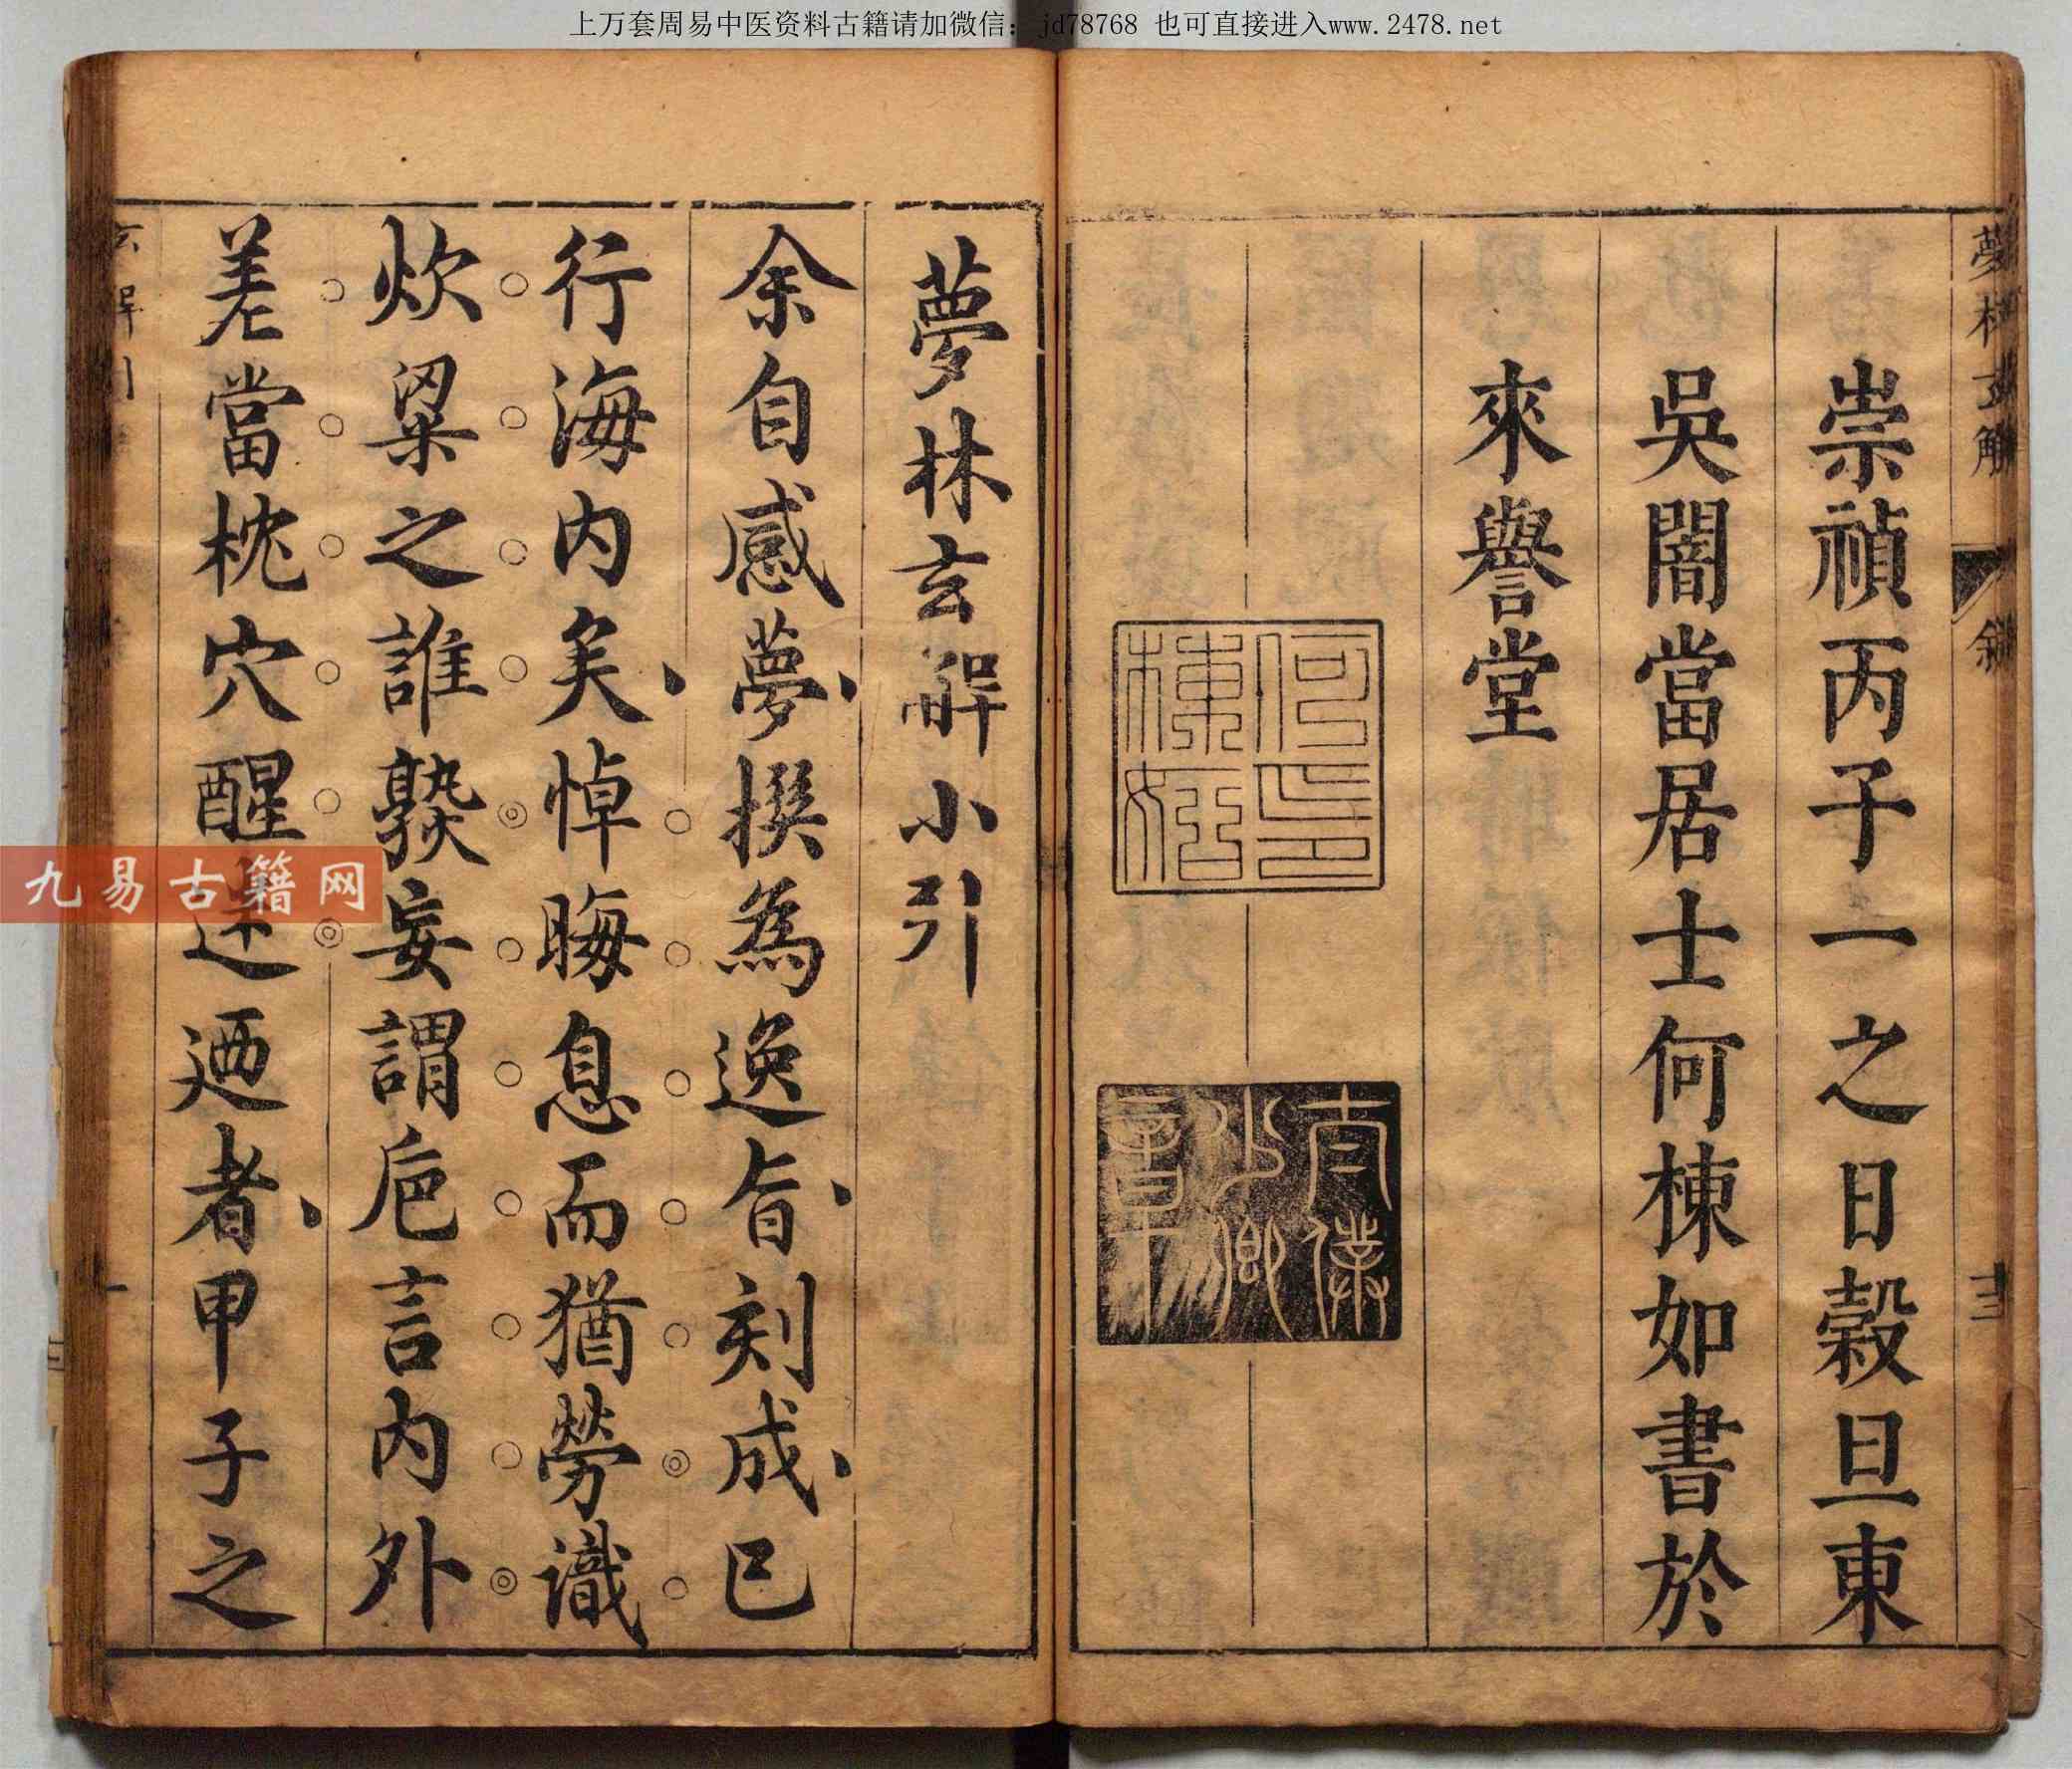 上万套周易中医资料古籍请加微信：jd78768 也可直接进入www.2478.net
崇禎丙子一之日穀旦東
吳闇當居士何棟如書於
來譽堂
何棟如印
太僕少卿章
夢林玄解小引
余自感夢撰為逸旨刻成已
行海内矣悼晦息而猶勞識
炊粱之誰𤍨妄謂卮言内外
差當枕穴醒迷迺者甲子之
夢林玄解
敘
九易古籍网